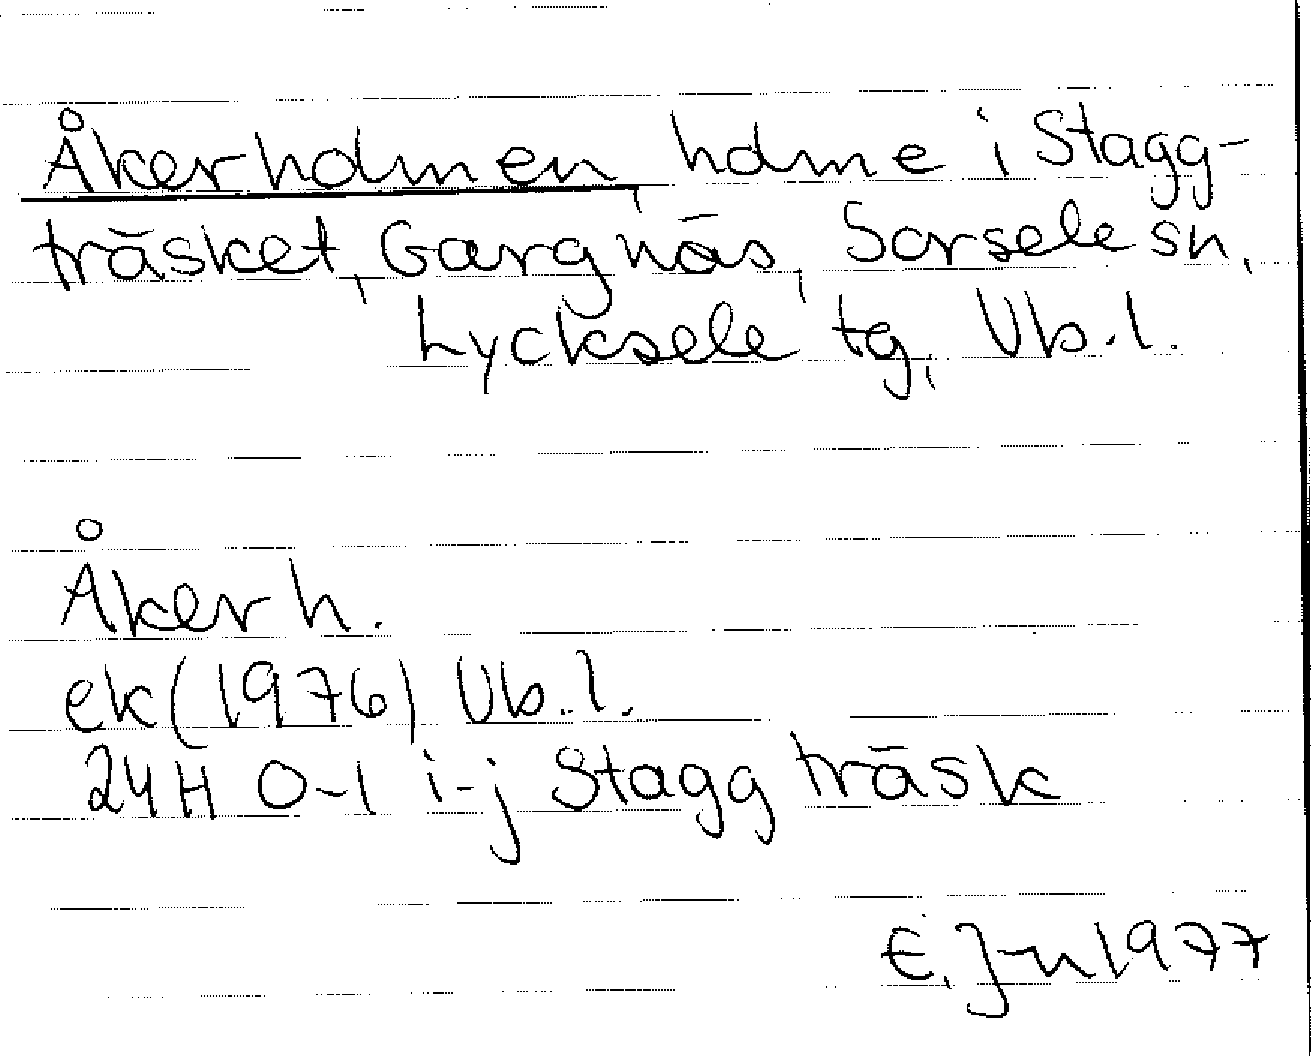 Åkerholmen, holme i Stagg-
träsket, Gargnäs, Sorsele sn,
Lycksele tg, Vb.l.
Åkerh.
ek (1976) Vb.l.
24H 0-1 i-j Staggträsk
E. J-n 1977